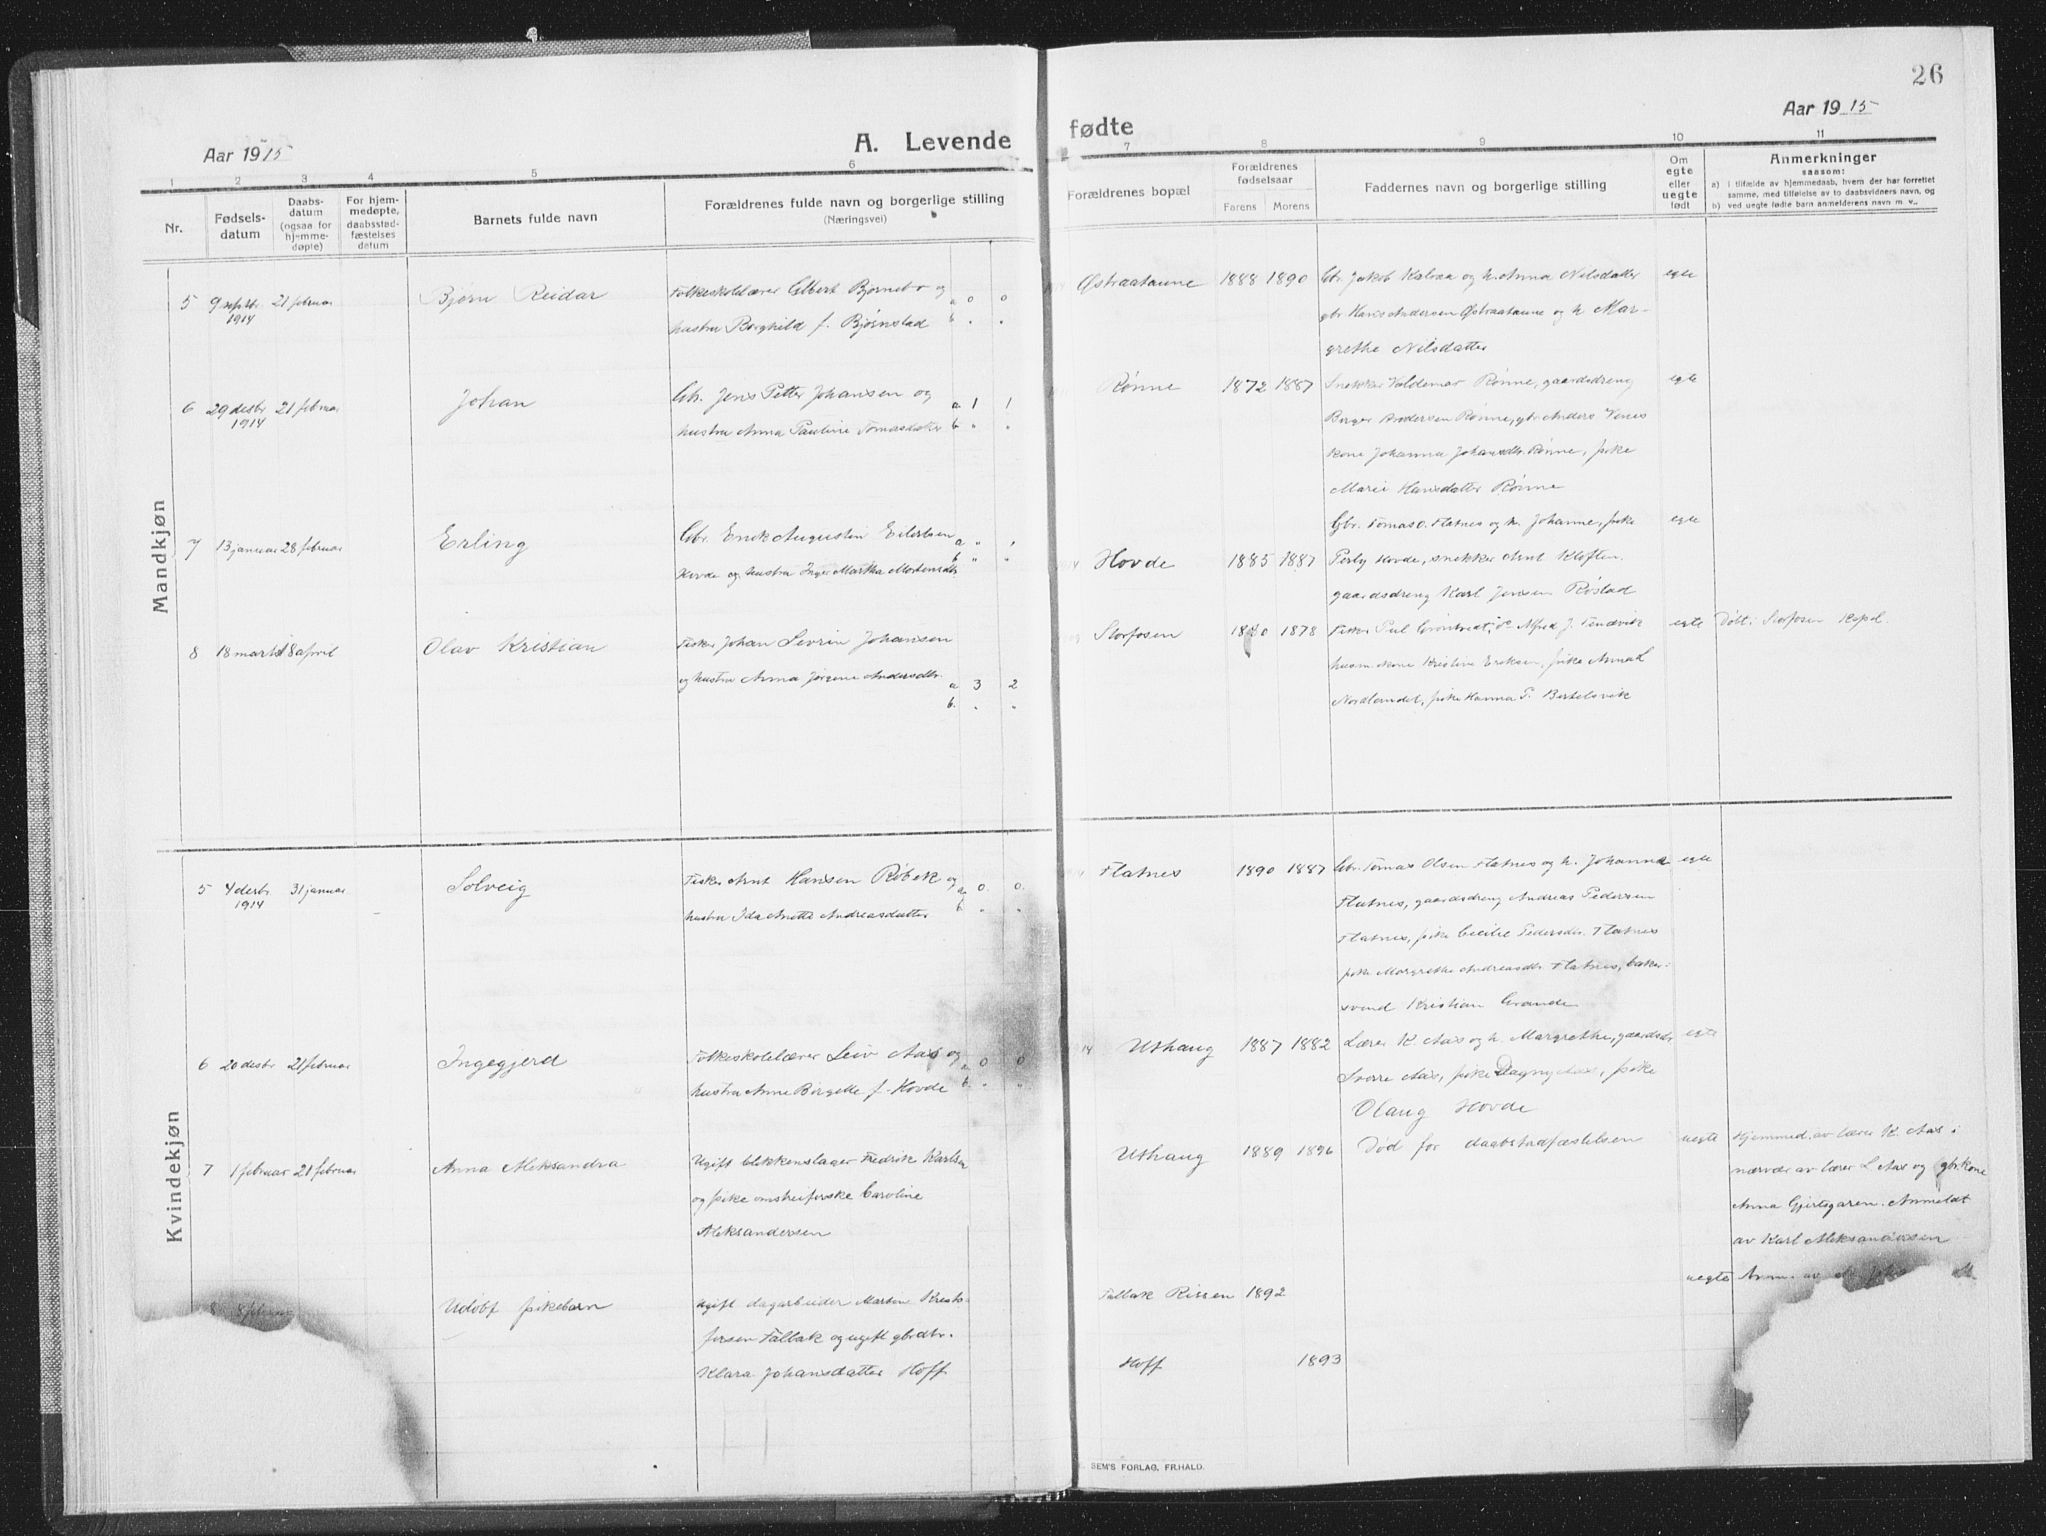 26
Aar 1915
A. Levende fødte
Aar 1915
1 2 3 4 5 6 7 8 9 10 11
Nr.
Fødsels-
datum
Daabs-
datum
(ogsaa for
hjemme-
døpte)
For hjem-
medøpte,
daabsstad-
fæstelses
datum
Barnets fulde navn
Forældrenes fulde navn og borgerlige stilling
(Næringsvei)
Forældrenes bopæl
Forældrenes
fødselsaar
Farens Morens
Faddernes navn og borgerlige stilling
Om
egte
eller
uegte
født
Anmerkninger
saasom:
a) i tilfælde av hjemmedaab, hvem der har forrettet
samme, med tilføielse av to daabsvidners navn, og
b) ved uegte fødte barn anmelderens navn m. v..
Mandkjøn
5 9 septbr 21 februar Bjørn Reidar Folkeskolelærer Elbert Bjørnebo og a 0 0
1914 hustru Borghild f. Bjørnstad b. " "
Østraataune 1888 1890 Gbr. Jakob Kalvaa og h. Anna Nilsdatter egte
gbr. Hans Andersen Østraataune og h. Mar-
grethe Nilsdatter
6 29 desbr 21 februar Johan Gbr. Jens Petter Johansen og a. 1 1
1914 hustru Anna Pauline Tomasdatter b. " "
Rønne 1872 1887 Snekker Valdemar Rønne, gaardsdreng egte
Birger Andersen Rønne, gbr. Anders Veies
kone Johanna Johansdtr. Rønne, pike
Marie Hansdatter Rønne
7 13 januar 28 februar Erling Gbr. Erik Augustin Eilertsen a " 1
Hovde og hustru Inger Martha Mortensdtr. b " "
Hovde 1885 1887 Gbr. Tomas O. Flatnes og h. Johanne, pike egte
Petry Hovde, snekker Arnt Kloften.
gaardsdreng Karl Jensen Røstad
8 18 marts 18 april Olav Kristian Fisker Johan Sevrin Johansen
og hustru Anna Jørgine Andersdtr. a 3 2
b. " "
Storfosen 1878 Fisker Paul Grøntvedt, do Alfred J. Tendvik egte Døbt i Storfosen kapel.
husm. kone Kristine Eriksen, pike Anna L
Nordlandet, pike Hanna P. Bertelsvik
Kvindekjøn
5 4 desbr 31 januar Solveig Fisker Arnt Hansen Røbek og a 0. 0.
1914 hustru Ida Anette Andreasdatter b. " "
Flatnes 1890 1887 Gbr. Tomas Olsen Flatnes og h. Johanna egte
Flatnes, gaardsdreng Andreas Pedersen
Flatnes, pike Cecilie Pedersdtr. Flatnes
pike Margrethe Andreasdtr. Flatnes, baker-
svend Kristian Grande
6 20 desbr 21 februar Ingegjerd Folkeskolelærer Leiv Aas og a. 0 0
hustru Anne Bergette f. Hovde b. " "
14 Uthaug 1887 1882 Lærer K. Aas og h. Margrethe, gaardsdr. egte
Sverre Aas, pike Dagny Aas, pike
Olaug Hovde
7 1 februar 21 februar Anna Aleksandra Ugift blikkenslager Fredrik Karlsen
og pike omstreiferske Caroline
Aleksandersen
Uthaug 1889 1896 Død før daabstadfæstelsen uegte Hjemmed. av lærer K. Aas i
nærvær av lærer L. Aas og gbrkone
Anna Gjertsgaren. Anmeldt
av Karl Aleksandersen
8 8 februar Udøbt pikebarn Ugift dagarbeider Morten Krist-
fersen Fallak og ugift gbrdtr.
Klara Johansdatter Hoff
Fallak Rissen 1892 uegte Anm. av
Hoff 1893
SEM'S FORLAG, FR.HALD.